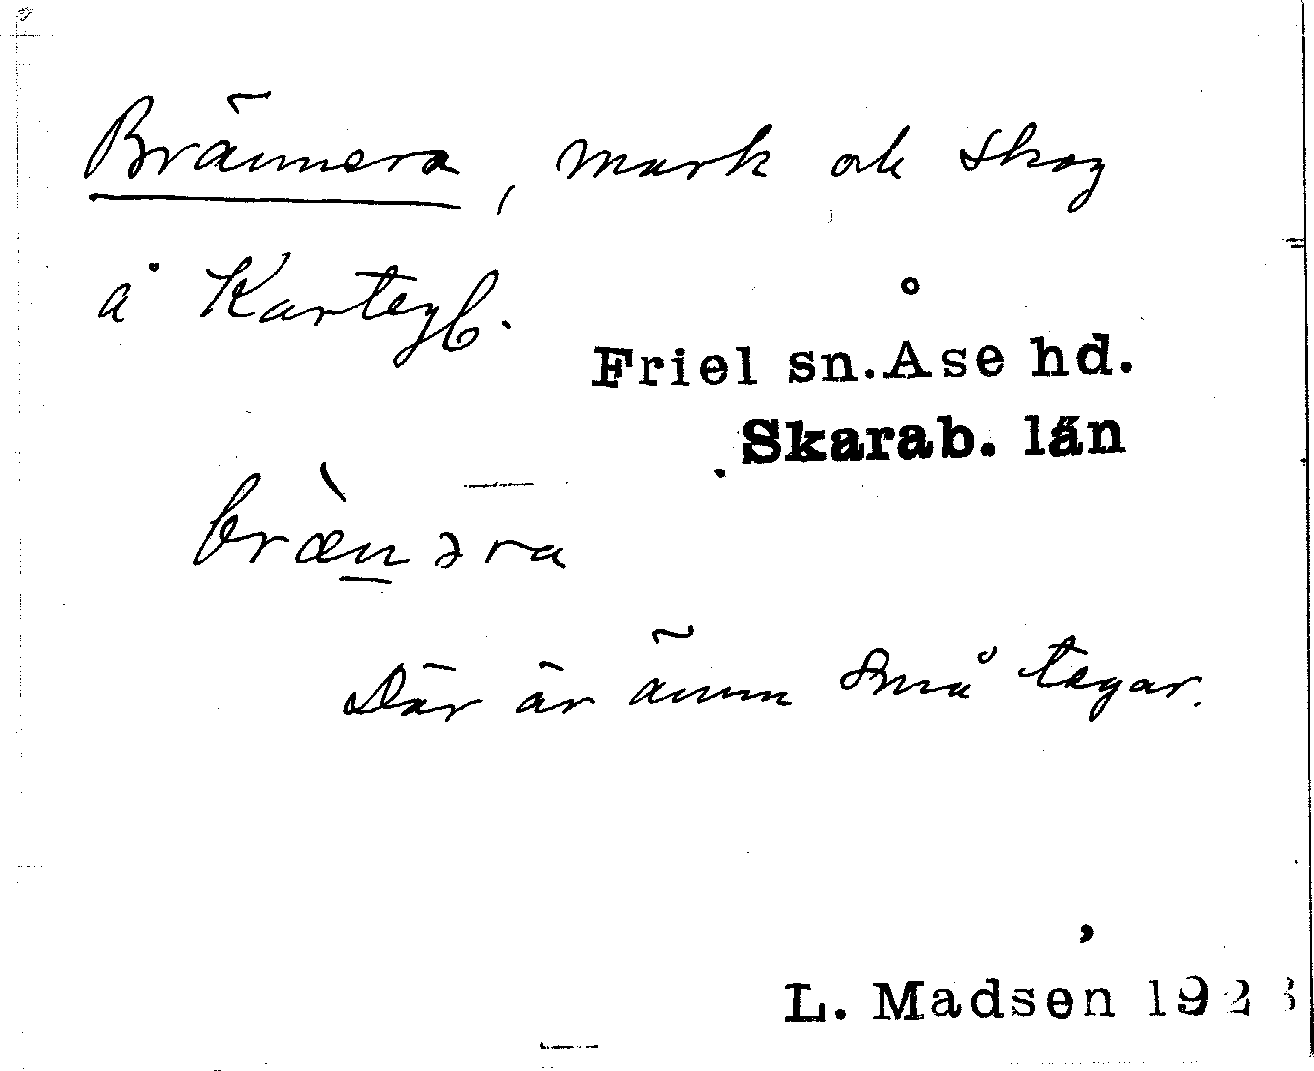 Brännera, mark och skog
å Kartegb.
Friel sn. Åse hd.
Skarab. län
bræ̀nəra
Där är ännu små tegar.
L. Madsen 1923